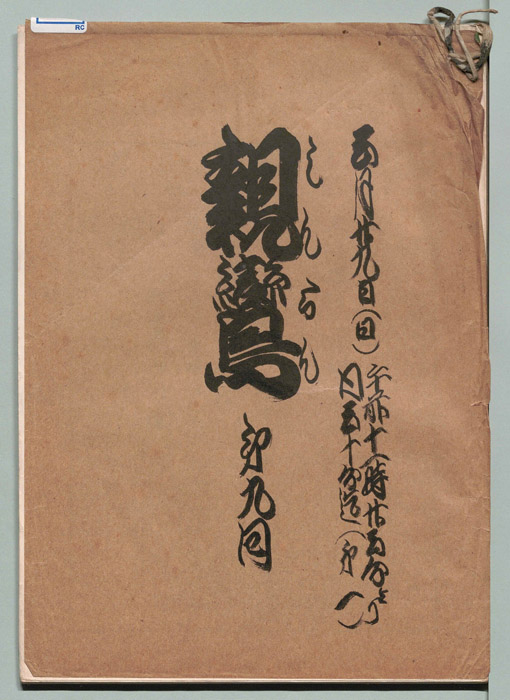 五月廿九日(日)
午前十時廿五分より
同五十分迄(第一)
しんらん
親鸞
第九回
RC